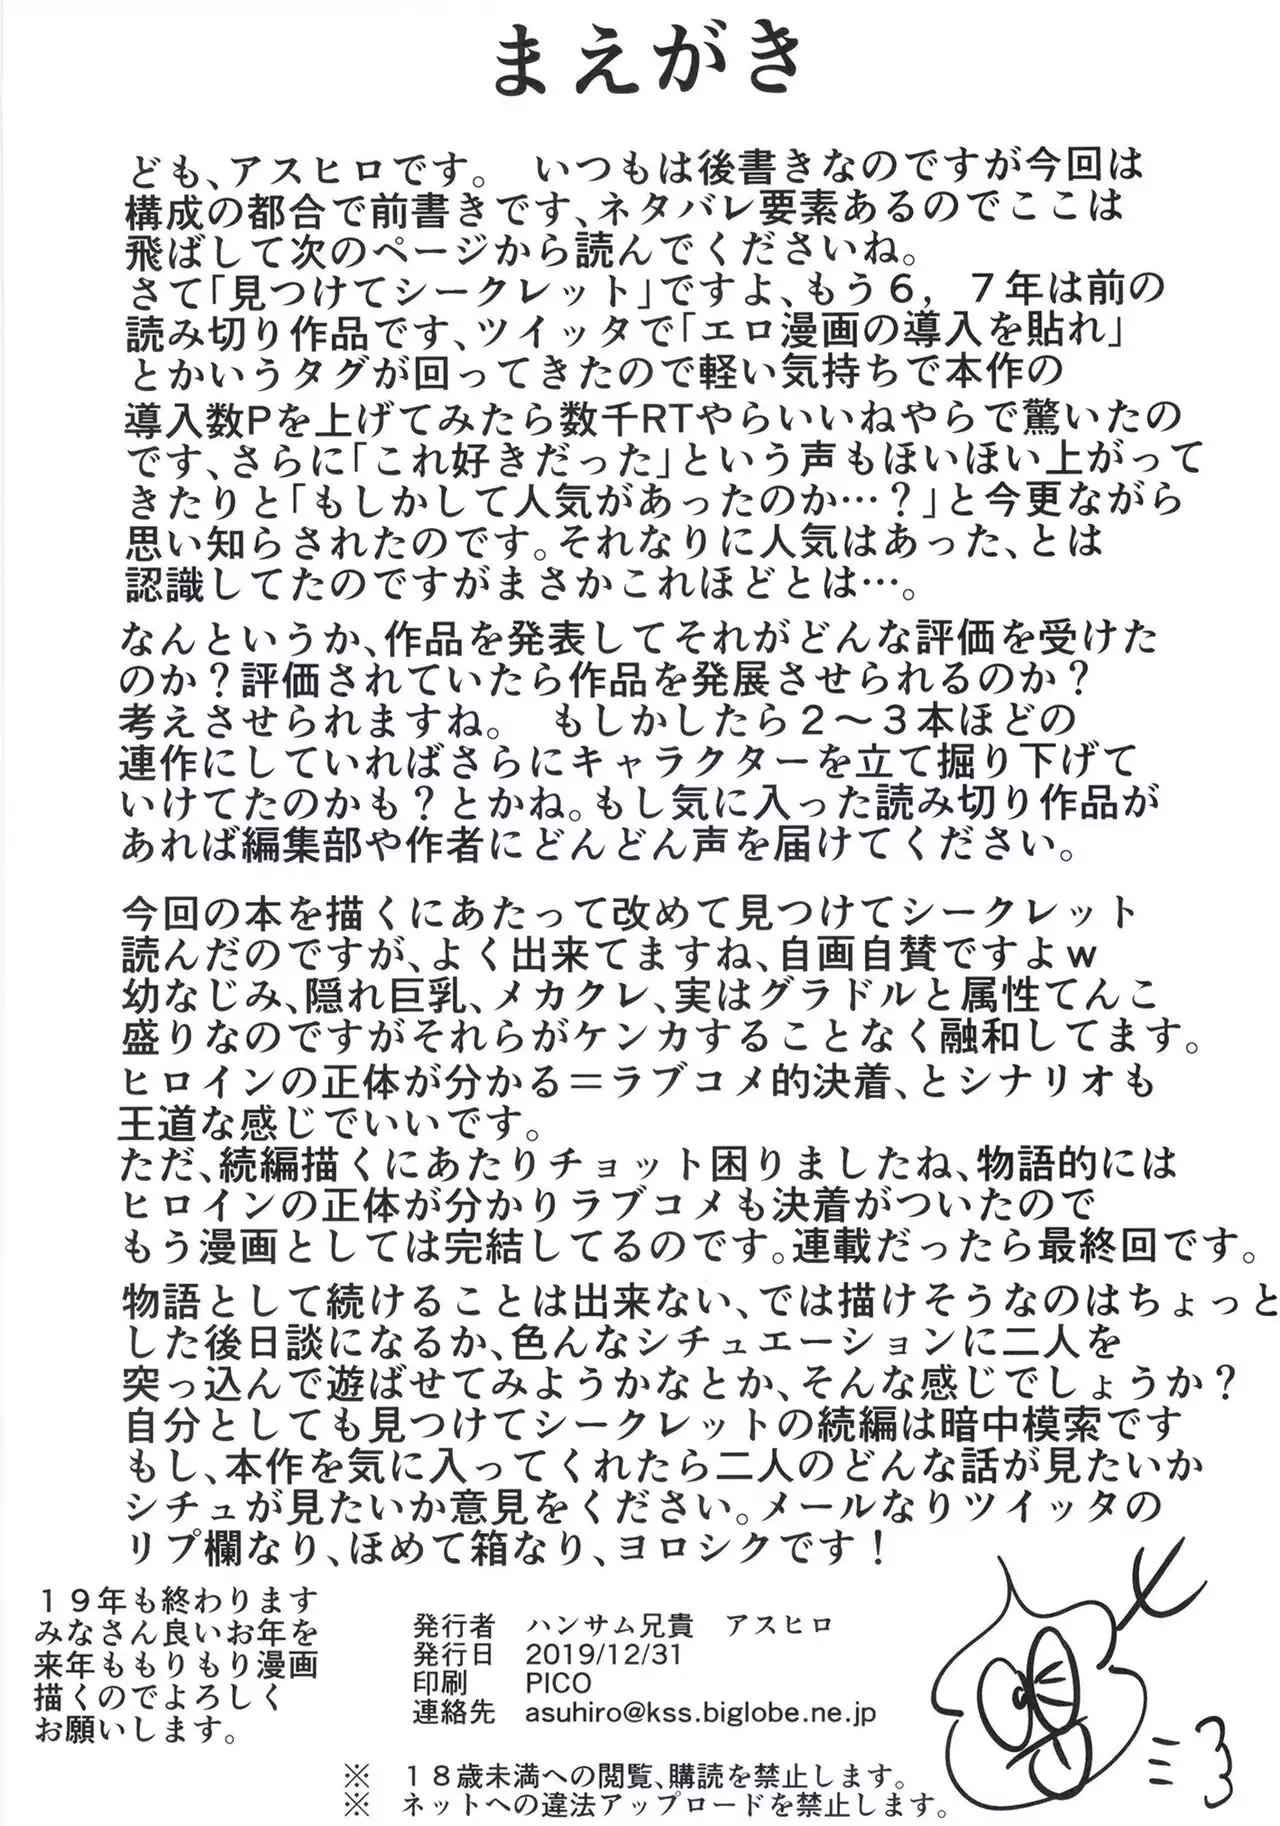 まえがき
ども、アスヒロです。　いつもは後書きなのですが今回は
構成の都合で前書きです、ネタバレ要素あるのでここは
飛ばして次のページから読んでくださいね。
さて「見つけてシークレット」ですよ、もう６，７年は前の
読み切り作品です、ツイッタで「エロ漫画の導入を貼れ」
とかいうタグが回ってきたので軽い気持ちで本作の
導入数Pを上げてみたら数千RTやらいいねやらで驚いたの
です、さらに「これ好きだった」という声もほいほい上がって
きたりと「もしかして人気があったのか…？」と今更ながら
思い知らされたのです。それなりに人気はあった、とは
認識してたのですがまさかこれほどとは…。
なんというか、作品を発表してそれがどんな評価を受けた
のか？評価されていたら作品を発展させられるのか？
考えさせられますね。　もしかしたら２～３本ほどの
連作にしていればさらにキャラクターを立て掘り下げて
いけてたのかも？とかね。もし気に入った読み切り作品が
あれば編集部や作者にどんどん声を届けてください。
今回の本を描くにあたって改めて見つけてシークレット
読んだのですが、よく出来てますね、自画自賛ですよｗ
幼なじみ、隠れ巨乳、メカクレ、実はグラドルと属性てんこ
盛りなのですがそれらがケンカすることなく融和してます。
ヒロインの正体が分かる＝ラブコメ的決着、とシナリオも
王道な感じでいいです。
ただ、続編描くにあたりチョット困りましたね、物語的には
ヒロインの正体が分かりラブコメも決着がついたので
もう漫画としては完結してるのです。連載だったら最終回です。
物語として続けることは出来ない、では描けそうなのはちょっと
した後日談になるか、色んなシチュエーションに二人を
突っ込んで遊ばせてみようかなとか、そんな感じでしょうか？
自分としても見つけてシークレットの続編は暗中模索です
もし、本作を気に入ってくれたら二人のどんな話が見たいか
シチュが見たいか意見をください。メールなりツイッタの
リプ欄なり、ほめて箱なり、ヨロシクです！
１９年も終わります
みなさん良いお年を
来年ももりもり漫画
描くのでよろしく
お願いします。
発行者　ハンサム兄貴　アスヒロ
発行日　2019/12/31
印刷　　PICO
連絡先　asuhiro@kss.biglobe.ne.jp
※　１８歳未満への閲覧、購読を禁止します。
※　ネットへの違法アップロードを禁止します。